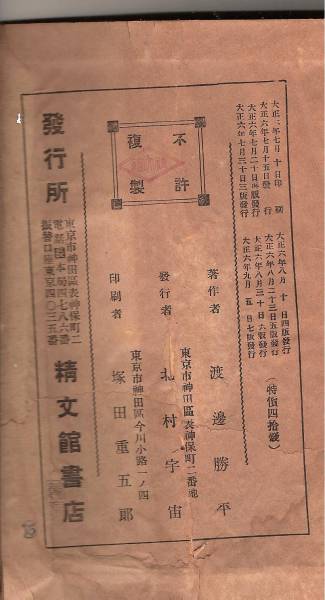 大正六年七月十日印刷
大正六年七月十五日發行
大正六年七月二十日再版發行
大正六年七月三十日三版發行
大正六年八月十日四版發行
大正六年八月二十三日五版發行
大正六年八月三十日六版發行
大正六年九月五日七版發行
(特價四拾錢)
不許
複製
著作者 渡邊勝平
東京市神田區表神保町二番地
發行者 北村宇宙
東京市神田區今川小路一ノ四
印刷者 塚田重五郎
發行所
東京市神田區表神保町二
電話本局四七八六番
振替口座東京四〇三五番
精文館書店